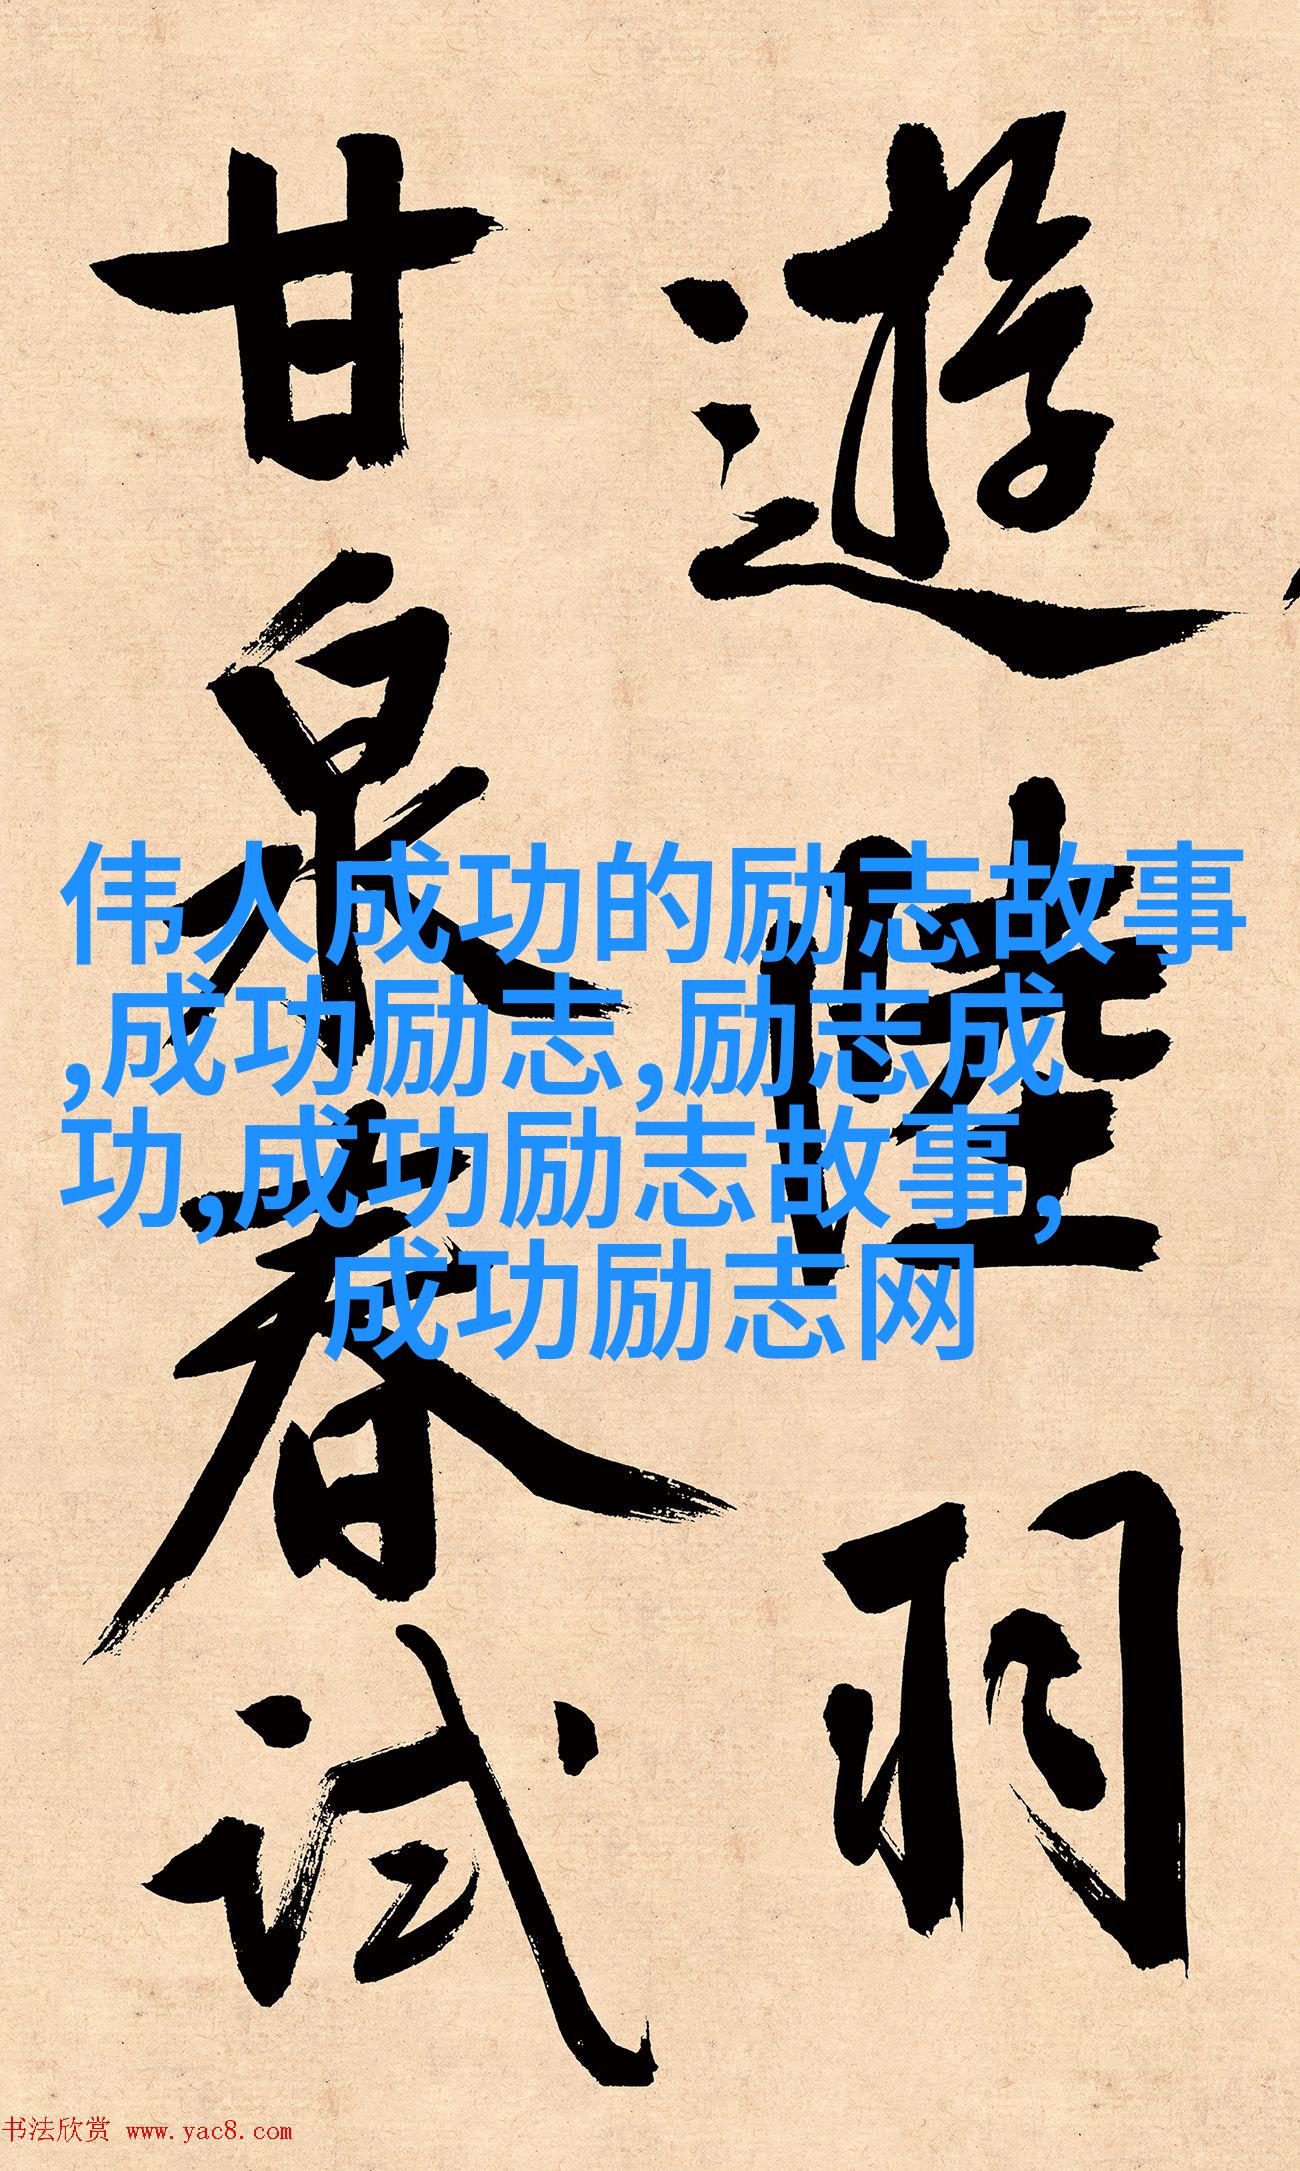 遊陸羽
甘泉春試
伟人成功的励志故事
,成功励志,励志成
功,成功励志故事,
成功励志网
书法欣赏 www.yac8.com